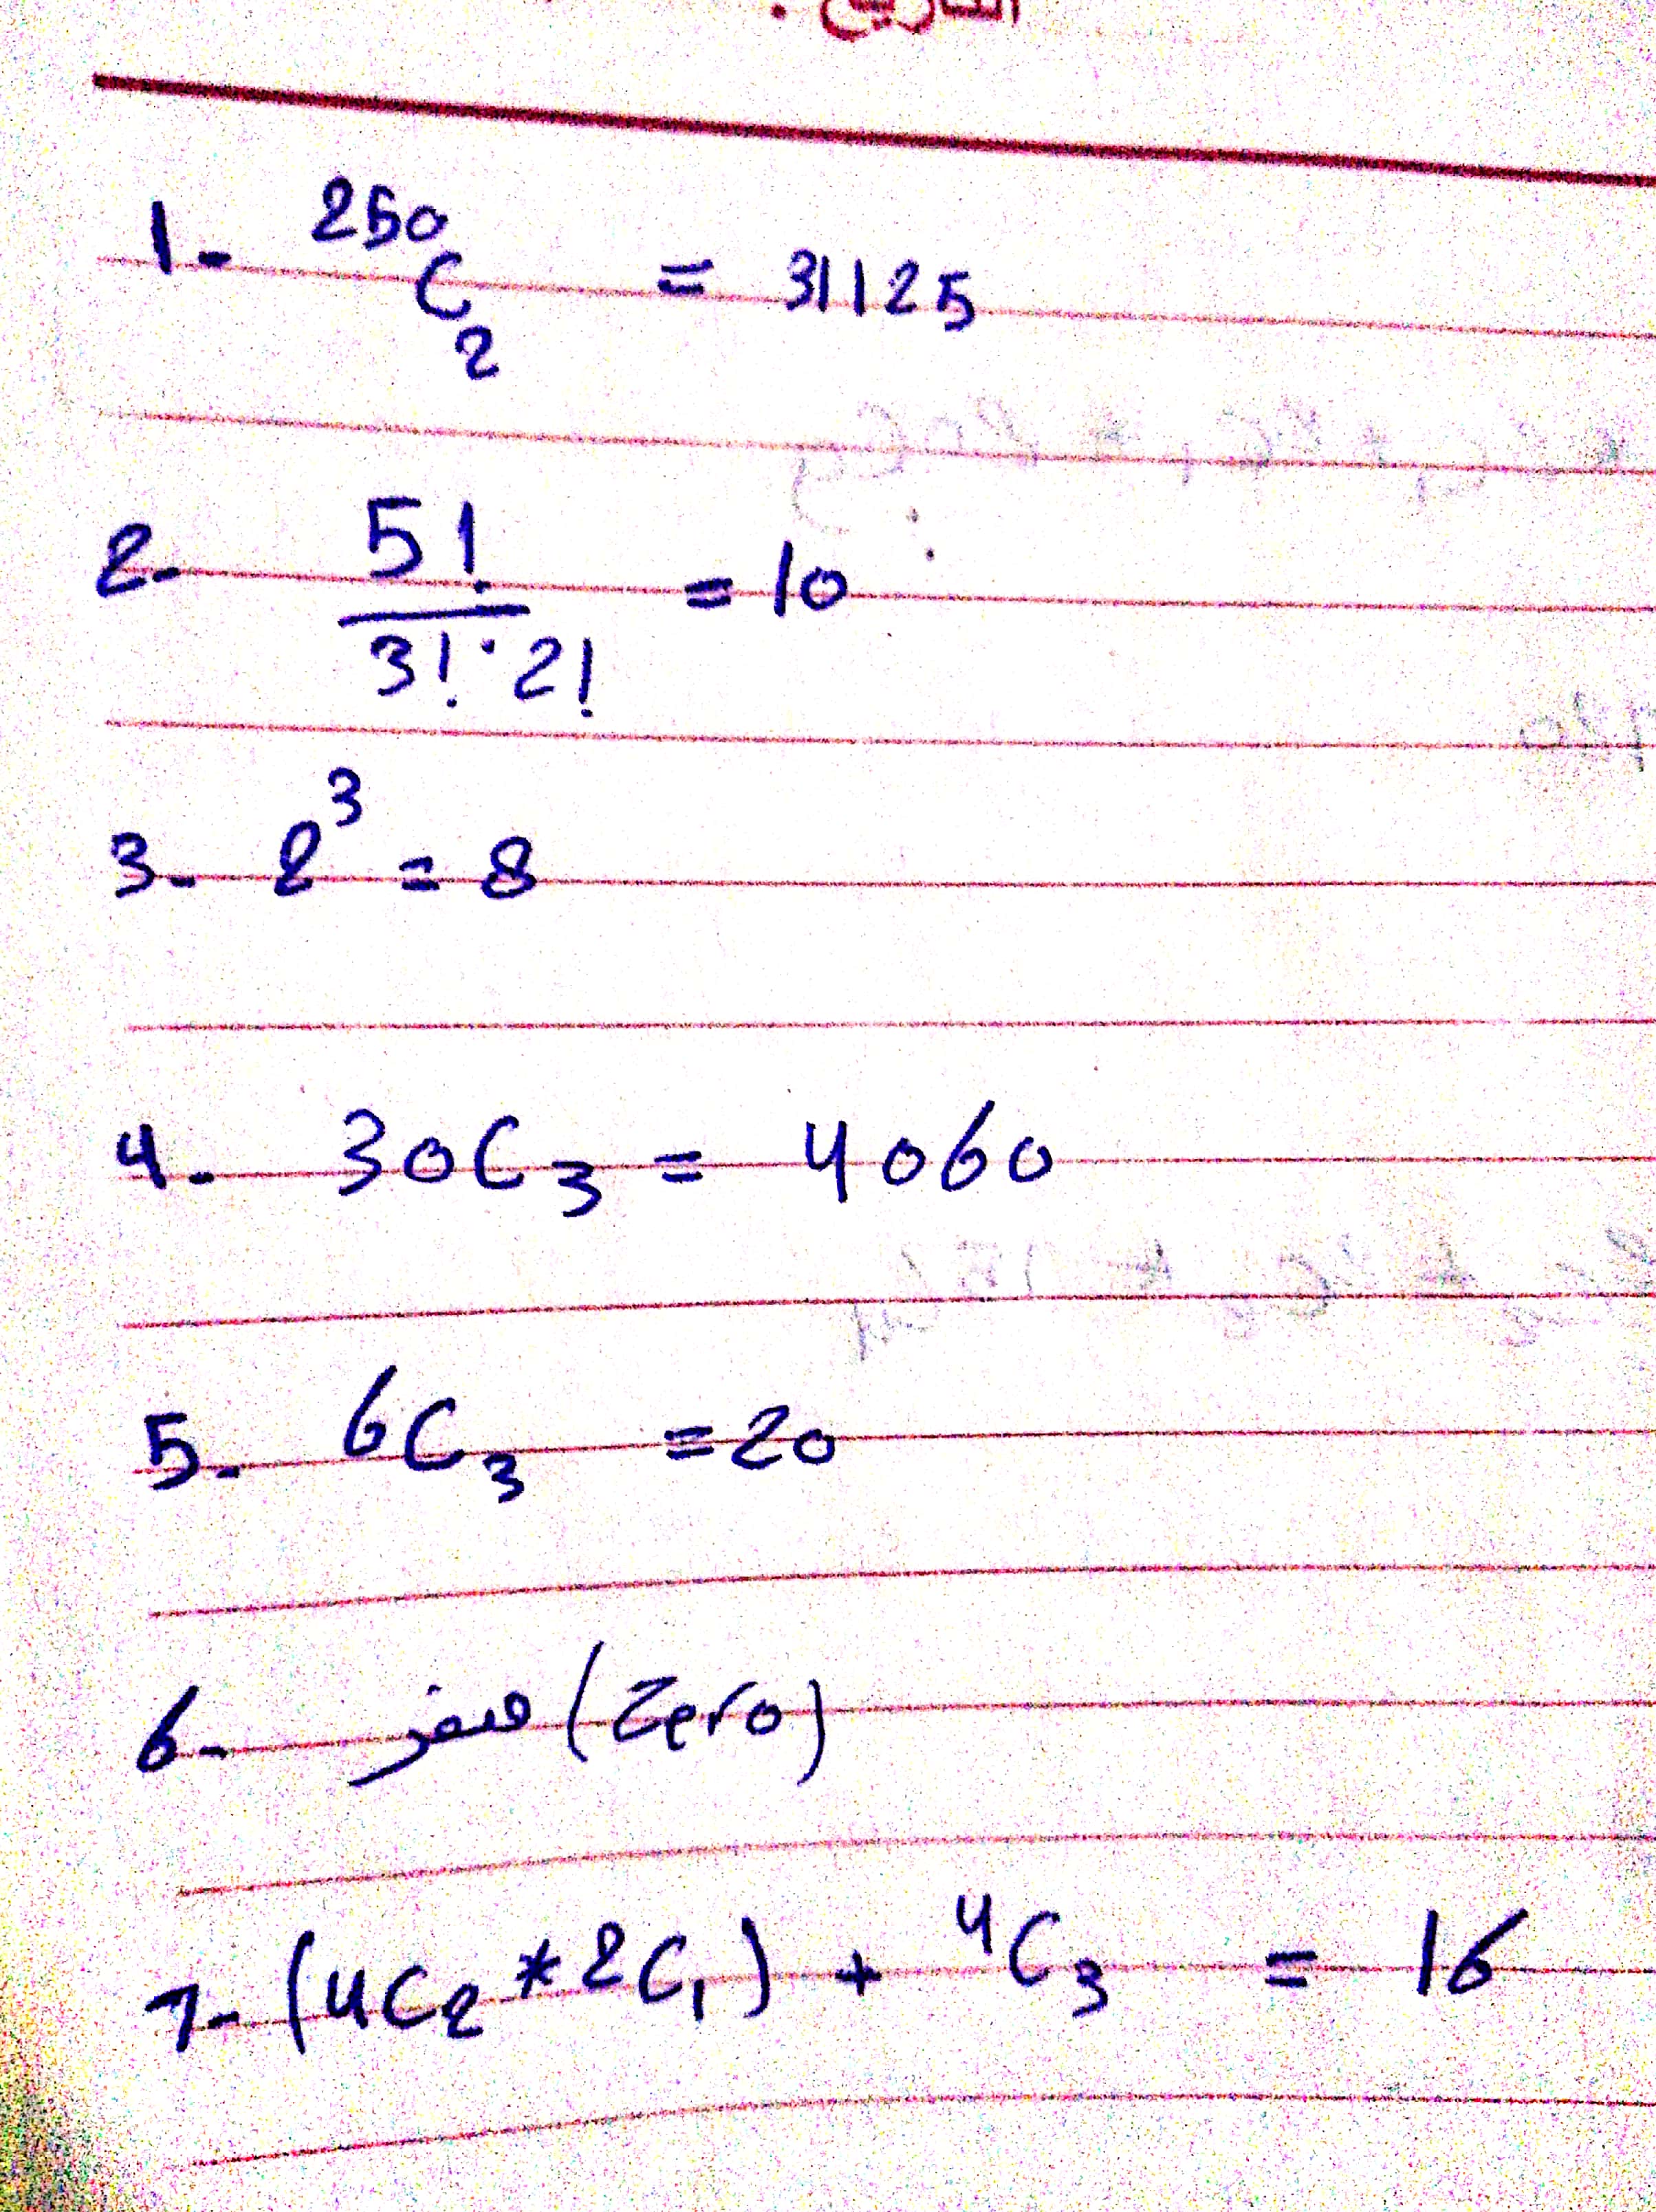 1- 250C2 = 31125
2- 5! / 3! · 2! = 10
3- 2³ = 8
4- 30C3 = 4060
5- 6C3 = 20
6- صفر (Zero)
7- (4C2 * 2C1) + 4C3 = 16